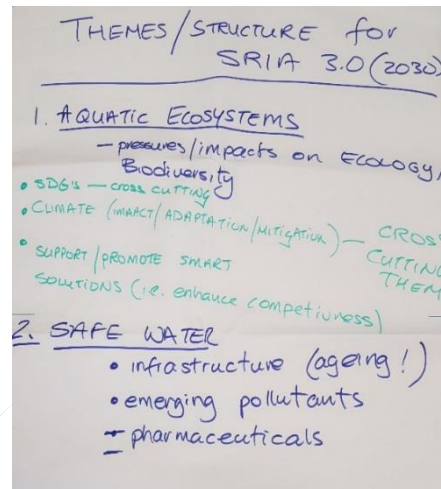 THEMES/STRUCTURE for
SRIA 3.0 (2030)
1. AQUATIC ECOSYSTEMS
– pressures/impacts on ECOLOGY,
Biodiversity
• SDG's — cross cutting
• CLIMATE (IMPACT/ADAPTATION/MITIGATION) — CROSS
CUTTING
THEM
• SUPPORT/PROMOTE SMART
SOLUTIONS (i.e. enhance competivness)
2. SAFE WATER
• infrastructure (ageing!)
• emerging pollutants
– pharmaceuticals